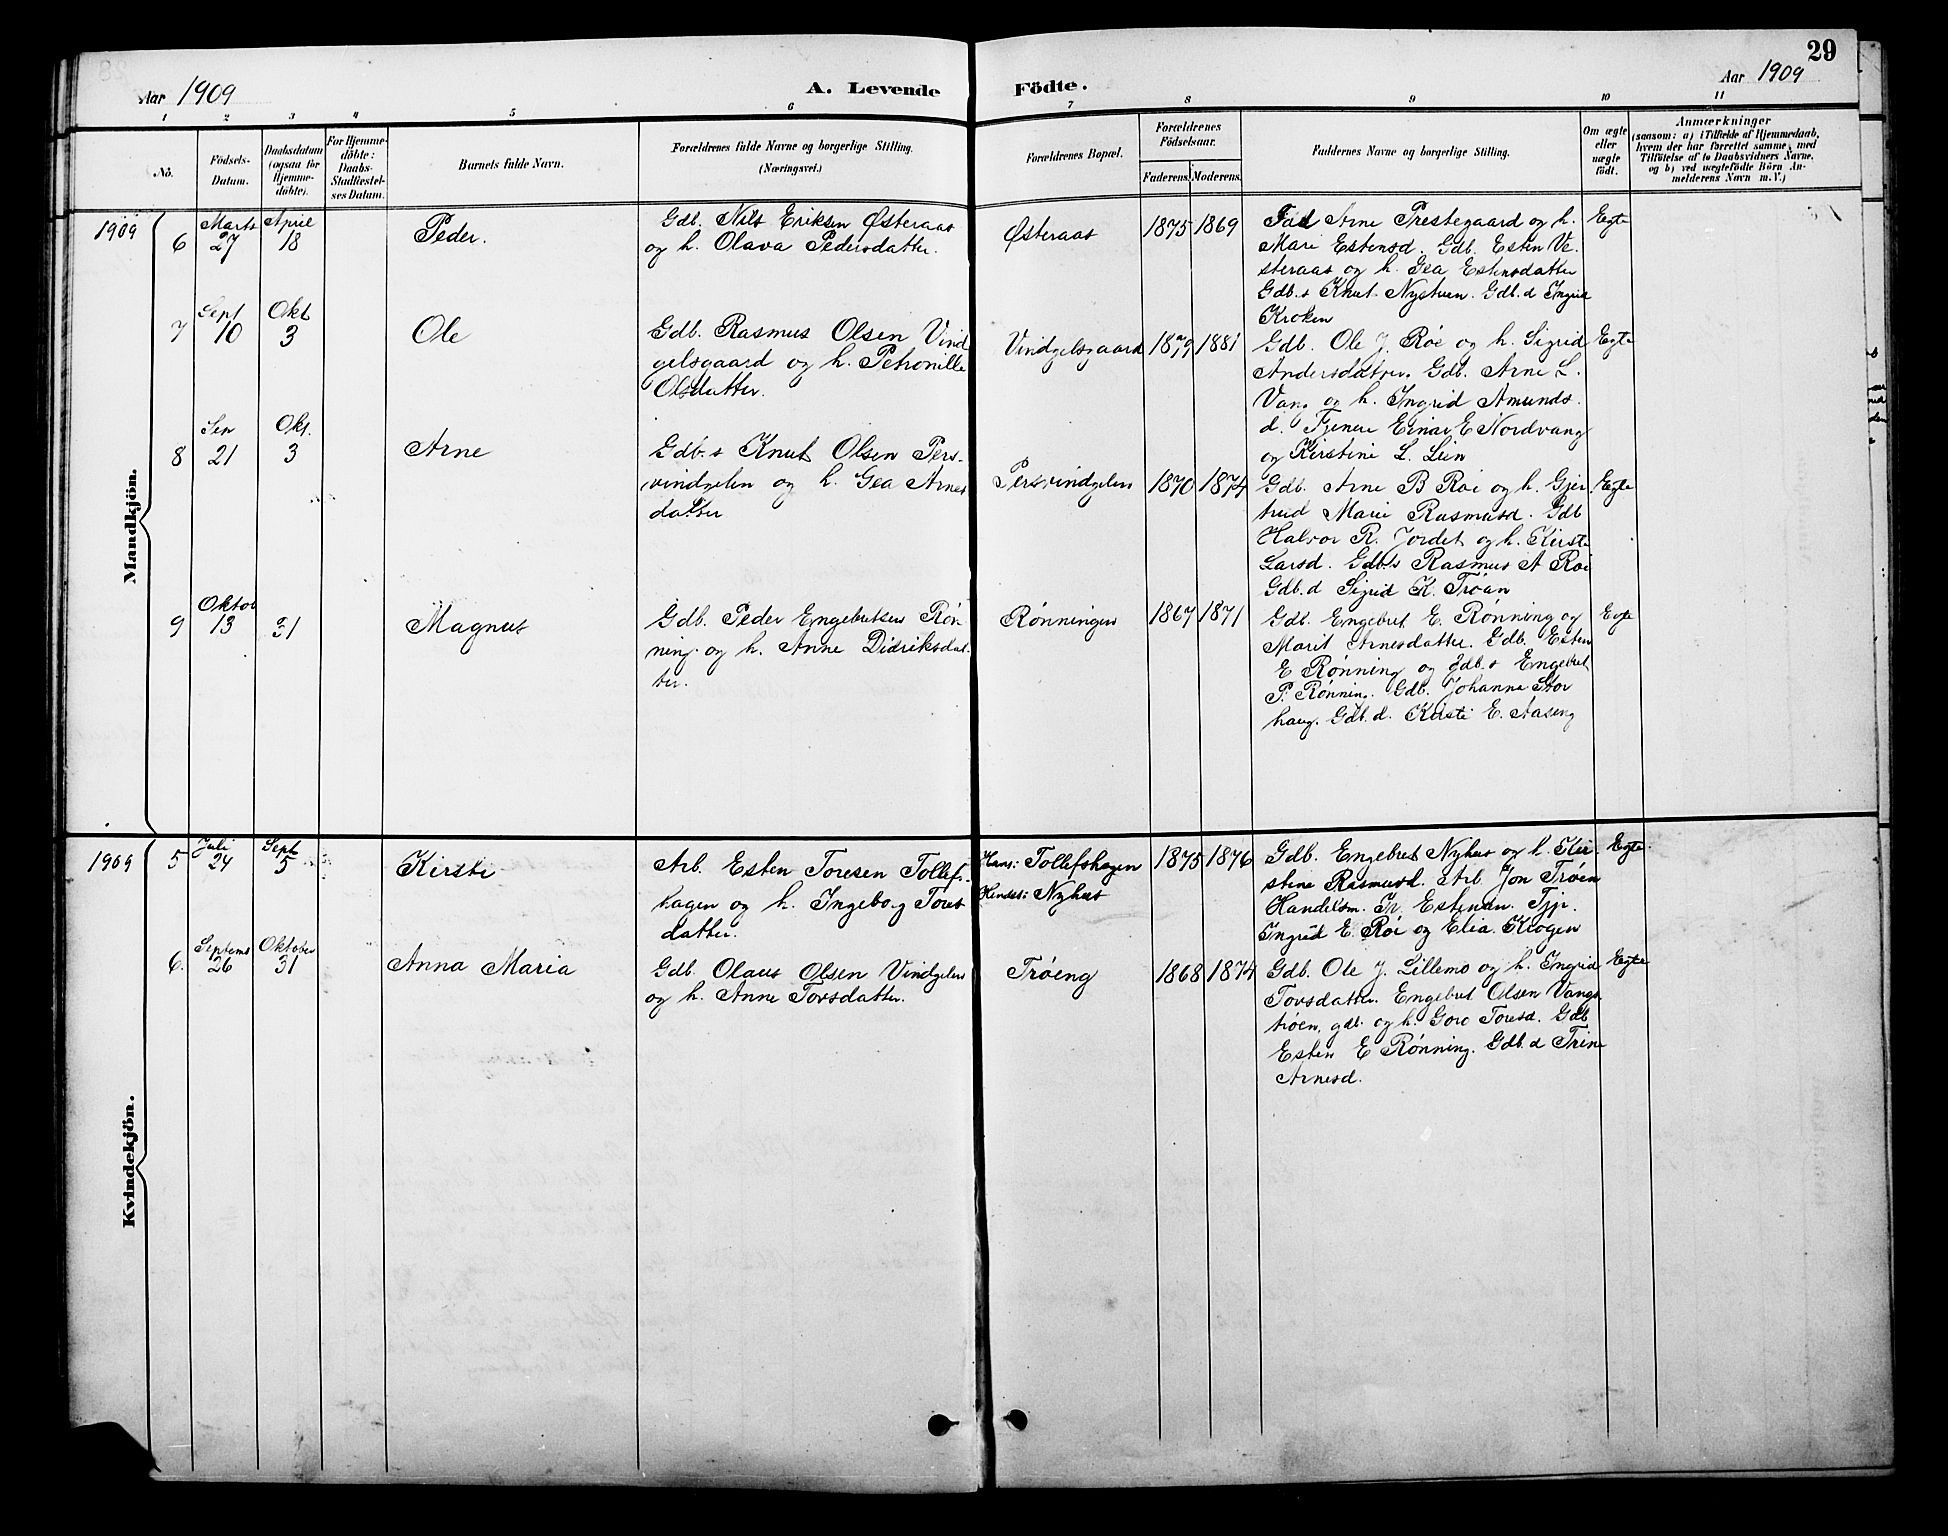 29
Aar 1909
A. Levende Födte.
Aar 1909
1 2 3 4 5 6 7 8 9 10 11
No.
Födsels-
Datum.
Daabsdatum
(ogsaa for
Hjemme-
döbte).
For Hjemme-
döbte:
Daabs-
Stadfæstel-
ses Datum.
Barnets fulde Navn.
Forældrenes fulde Navne og borgerlige Stilling.
(Næringsvei.)
Forældrenes Bopæl.
Forældrenes
Födselsaar.
Faderens. Moderens.
Faddernes Navne og borgerlige Stilling.
Om ægte
eller
uægte
födt.
Anmærkninger
(saasom: a) i Tilfælde af Hjemmedaab,
hvem der har forrettet samme, med
Tilföielse af to Daabsvidners Navne,
og b) ved uægtefödte Börn An-
melderens Navn m. V.)
Mandkjön.
1909
6
Marts
27
April
18
Peder.
Gdb. Nils Eriksen Østeraas
og h. Olava Pedersdatter.
Østeraas
1875 1869
Arne Prestegaard og h.
Mari Estensd. Gdb. Esten Ve-
steraas og h. Gea Estensdatter
Gdb.s Knut Nystuen. Gdb.d Ingrid
Kroken
Egte
7
Sept
10
Okt
3
Ole
Gdb. Rasmus Olsen Vind
gelsgaard og h. Petronille
Olsdatter.
Vindgelsgaard
1879 1881
Gdb. Ole J. Røe og h. Sigrid
Andersdatter. Gdb. Arne L.
Vang og h. Ingrid Amunds.
d. Tjener Einar E Nordvang
og Kirstine L. Lien
Egte
8
Sep
21
Okt.
3
Arne
Gdb.s Knut Olsen Pers-
vindgelen og h. Gea Arnes
datter
Persvindgelen
1870 1874
Gdb. Arne B Røe og h. Gjer
trud Marie Rasmusd. Gdb
Halvor R. Jordet og h. Kirsti
Larsd. Gdb.s Rasmus A Røe
Gdb.d Sigrid K. Trøan
Egte
9
Oktob
13
31
Magnus
Gdb. Peder Engebretsen Røn
ning og h. Anne Didriksdat-
ter.
Rønningen
1867 1871
Gdb. Engebret E. Rønning og
Marit Arnesdatter. Gdb. Esten
E Rønning og gdb.s Engebret
P. Rønning. Gdb. Johanne Stor
haug. Gdb.d. Kirsti E. Aaseng
Egte
Kvindekjön.
1909
5
Juli
24
Sept
5
Kirsti
Arb. Esten Toresen Tollefs-
hagen og h. Ingeborg Tores
datter.
Hans: Tollefshagen
Hendes: Nyhus
1875 1876
Gdb. Engebret Nyhus og h. Kir-
stine Rasmusd. Arb. Jon Trøen
Handelsm. Estensen. Tjp.
Ingrid E. Røe og Elia Krogen
Egte
6.
Septemb
26
Oktober
31
Anna Maria
Gdb. Olaus Olsen Vindgelen
og h. Anne Torsdatter.
Trøeng
1868 1874
Gdb. Ole J. Lillemo og h. Ingrid
Torsdatter. Engebret Olsen Vangs
trøen, gdb. og h. Goro Toresd. Gdb
Esten E Rønning. Gdb.d Trine
Arnesd.
Egte